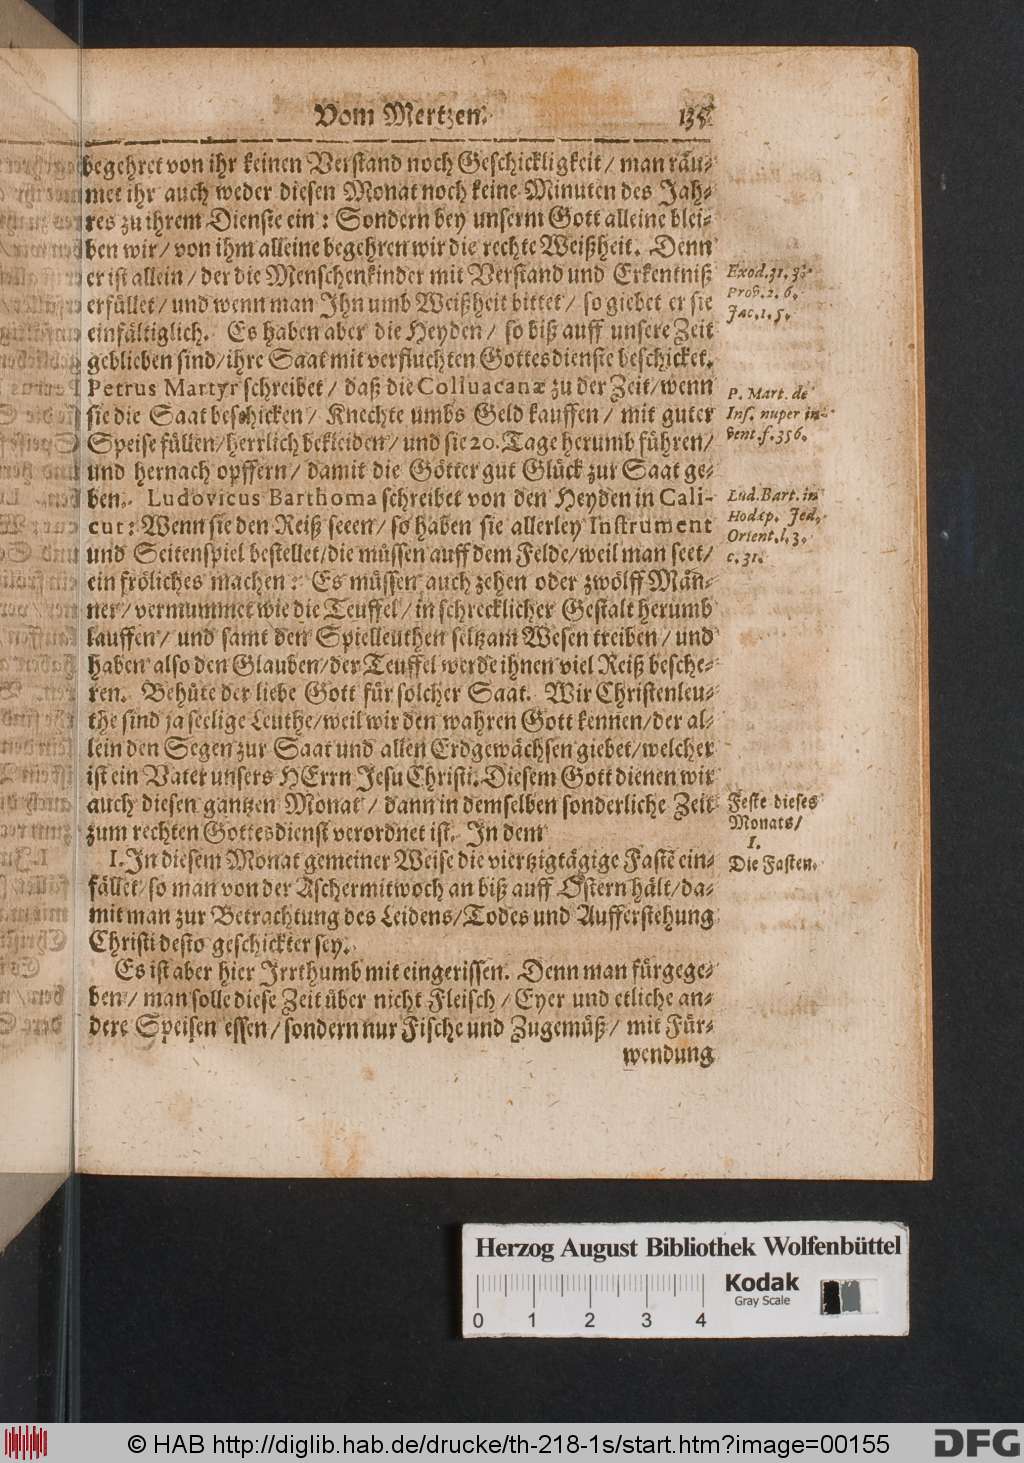 Vom Mertzen. 135
begehret von ihr keinen Verstand noch Geschickligkeit / man räu-
met ihr auch weder diesen Monat noch keine Minuten des Jah-
res zu ihrem Dienste ein : Sondern bey unserm Gott alleine blei-
ben wir / von ihm alleine begehren wir die rechte Weißheit. Denn
er ist allein / der die Menschenkinder mit Verstand und Erkentniß
erfüllet / und wenn man Ihn umb Weißheit bittet / so giebet er sie
einfältiglich. Es haben aber die Heyden / so biß auff unsere Zeit
geblieben sind / ihre Saat mit verfluchten Gottesdienste beschicket.
Petrus Martyr schreibet / daß die Colluacanæ zu der Zeit / wenn
sie die Saat beschicken / Knechte umbs Geld kauffen / mit guter
Speise füllen / herrlich bekleiden / und sie 20. Tage herumb führen /
und hernach opffern / damit die Götter gut Glück zur Saat ge-
ben. Ludovicus Barthoma schreibet von den Heyden in Cali-
cut : Wenn sie den Reiß seeen / so haben sie allerley Instrument
und Seitenspiel bestellet / die müssen auff dem Felde / weil man seet /
ein fröliches machen : Es müssen auch zehen oder zwölff Män-
ner / vermummet wie die Teuffel / in schrecklicher Gestalt herumb
lauffen / und samt den Spielleuthen seltzam Wesen treiben / und
haben also den Glauben / der Teuffel werde ihnen viel Reiß besche-
ren. Behüte der liebe Gott für solcher Saat. Wir Christenleu-
the sind ja seelige Leuthe / weil wir den wahren Gott kennen / der al-
lein den Segen zur Saat und allen Erdgewächsen giebet / welcher
ist ein Vater unsers HErrn Jesu Christi. Diesem Gott dienen wir
auch diesen gantzen Monat / dann in demselben sonderliche Zeit
zum rechten Gottesdienst verordnet ist. In dem
I. In diesem Monat gemeiner Weise die viertzigtägige Fastē ein-
fället / so man von der Aschermitwoch an biß auff Ostern hält / da-
mit man zur Betrachtung des Leidens / Todes und Aufferstehung
Christi desto geschickter sey.
Es ist aber hier Irrthumb mit eingerissen. Denn man fürgege-
ben / man solle diese Zeit über nicht Fleisch / Eyer und etliche an-
dere Speisen essen / sondern nur Fische und Zugemüß / mit Für-
wendung
Exod. 31. 3.
Prov. 2. 6.
Jac. 1. 5.
P. Mart. de
Ins. nuper in-
vent. f. 356.
Lud. Bart. in
Hodœp. Jed.
Orient. l. 3.
c. 31.
Feste dieses
Monats /
I.
Die Fasten.
Herzog August Bibliothek Wolfenbüttel
Kodak
Gray Scale
0 1 2 3 4
© HAB http://diglib.hab.de/drucke/th-218-1s/start.htm?image=00155
DFG